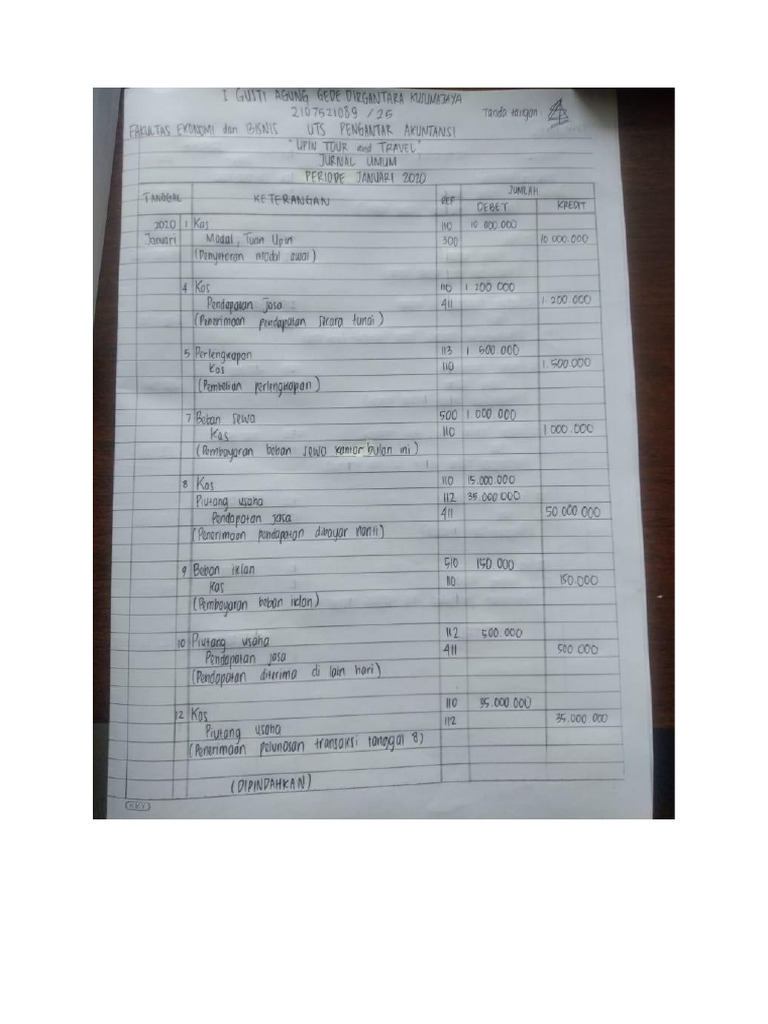 I GUSTI AGUNG GEDE DIRGANTARA KUSUMAJAYA
2107521089 / 25 Tanda tangan
FAKULTAS EKONOMI dan BISNIS UTS PENGANTAR AKUNTANSI
"UPIN TOUR and TRAVEL"
JURNAL UMUM
PERIODE JANUARI 2020
TANGGAL KETERANGAN REF JUMLAH
DEBET KREDIT
2020 1 Kas 110 10 000.000
Januari Modal, Tuan Upin 300 10 000.000
(Penyetoran modal awal)
4 Kas 110 1 200 000
Pendapatan jasa 411 1 200 000
(Penerimaan pendapatan secara tunai)
5 Perlengkapan 113 1 500.000
Kas 110 1.500.000
(Pembelian perlengkapan)
7 Beban sewa 500 1.000.000
Kas 110 1 000.000
(Pembayaran beban sewa kantor bulan ini)
8 Kas 110 15.000.000
Piutang usaha 112 35.000.000
Pendapatan jasa 411 50 000 000
(Penerimaan pendapatan dibayar nanti)
9 Beban iklan 510 150.000
Kas 110 150.000
(Pembayaran beban iklan)
10 Piutang usaha 112 500.000
Pendapatan jasa 411 500 000
(Pendapatan diterima di lain hari)
12 Kas 110 35.000.000
Piutang usaha 112 35.000.000
(Penerimaan pelunasan transaksi tanggal 8)
(DIPINDAHKAN)
KKY